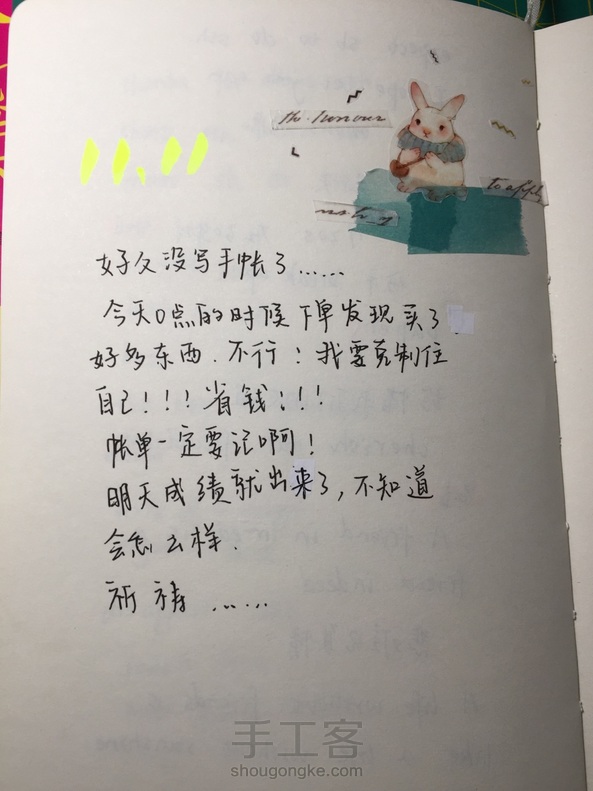 11.11
the honour
to appl
好久没写手帐了……
今天0点的时候下单发现买了
好多东西.不行!我要克制住
自己!!!省钱!!!
帐单一定要记啊!
明天成绩就出来了,不知道
会怎么样.
祈祷……
手工客
shougongke.com